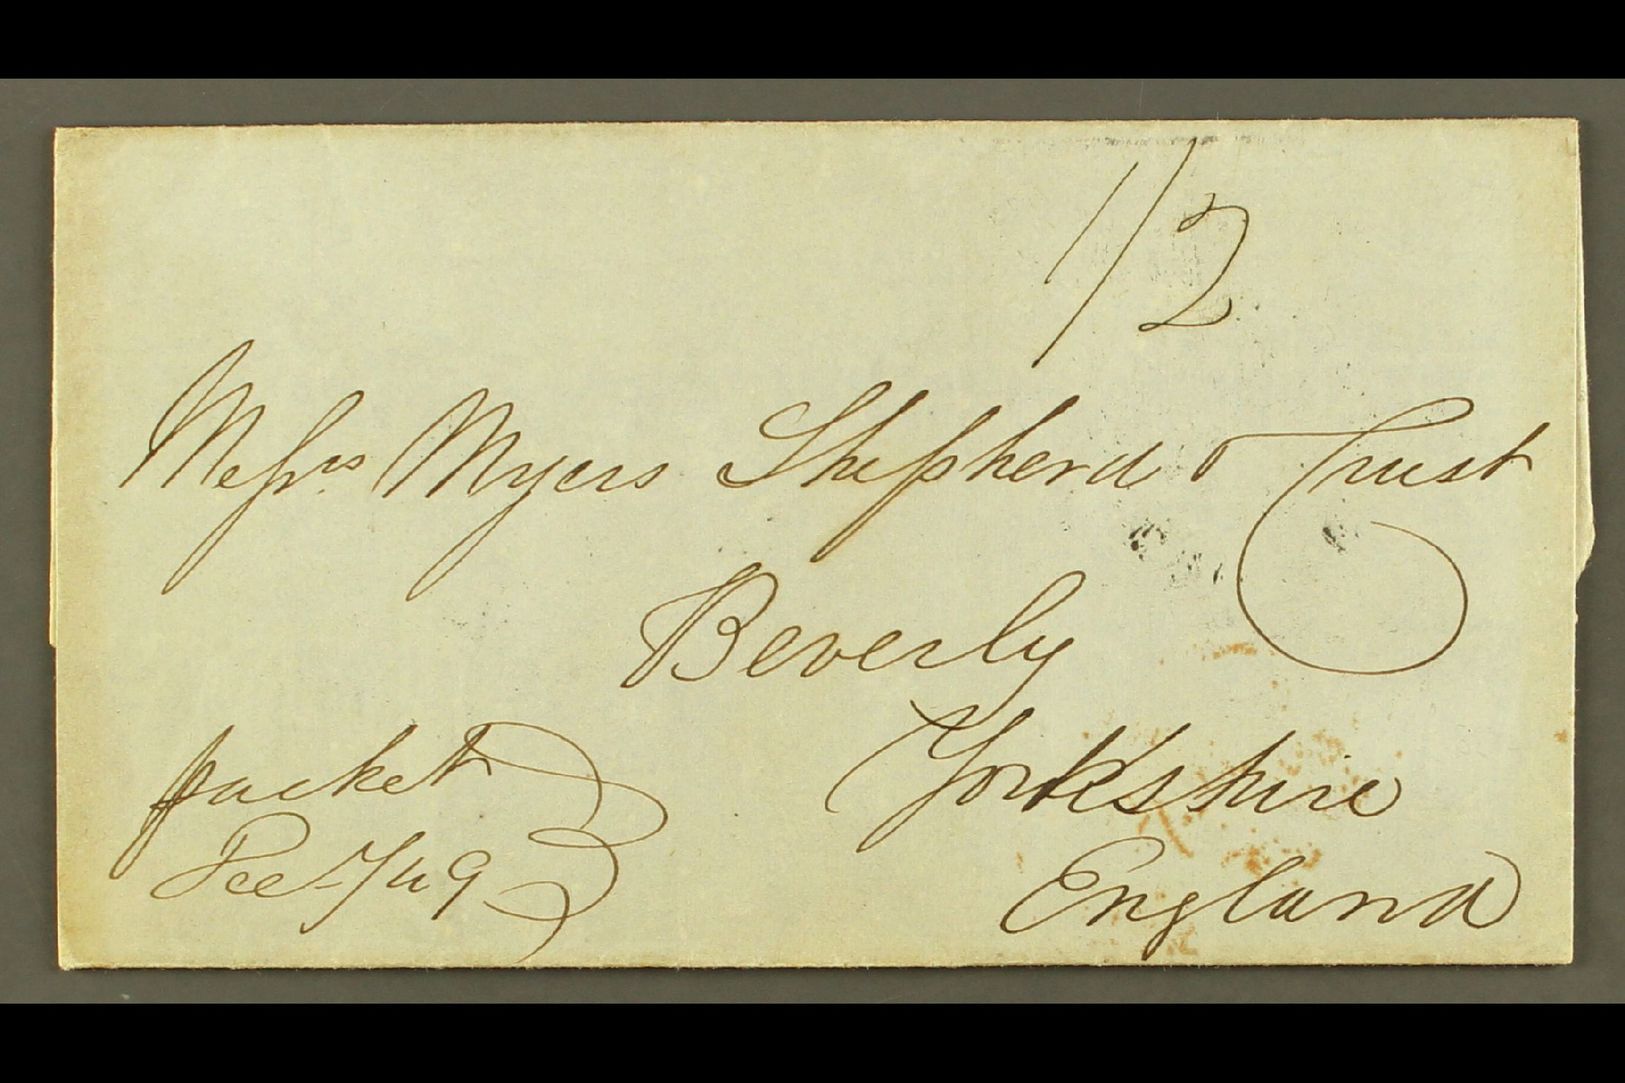 1/2
Messrs Myers Shepherd & Trust
Beverly
Yorkshire
England
packet
Dec 7/49